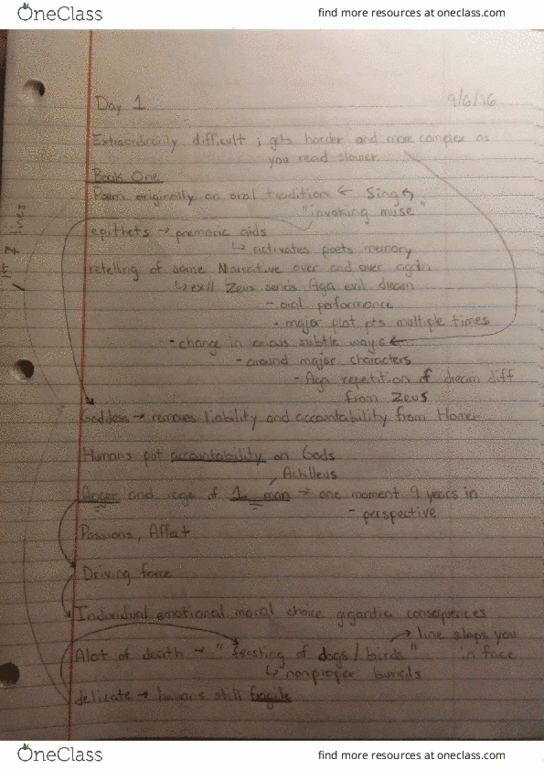 OneClass find more resources at oneclass.com
Day 1 9/6/16
Extraordinarily difficult ; gets harder and more complex as
you read slower
Book One
Poem originally an oral tradition ← Sing
"invoking muse"
epithets → pnemonic aids
↳ activates poets memory
retelling of same Narrative over and over again
↳ex// Zeus sends Aga evil dream
- oral performance
- major plot pts multiple times
- change in various subtle ways ←
- around major characters
- Aga repetition of dream diff
from Zeus
Goddess → removes liability and accountability from Homer
Humans put accountability on Gods
Achilleus
Anger and rage of 1 man → one moment 9 years in
- perspective
Passions, Affect
Driving force
Individual emotional moral choice gigantic consequences
→ line slaps you
Alot of death → "feasting of dogs / birds" in face
↳ nonproper burials
delicate → humans still fragile
OneClass find more resources at oneclass.com